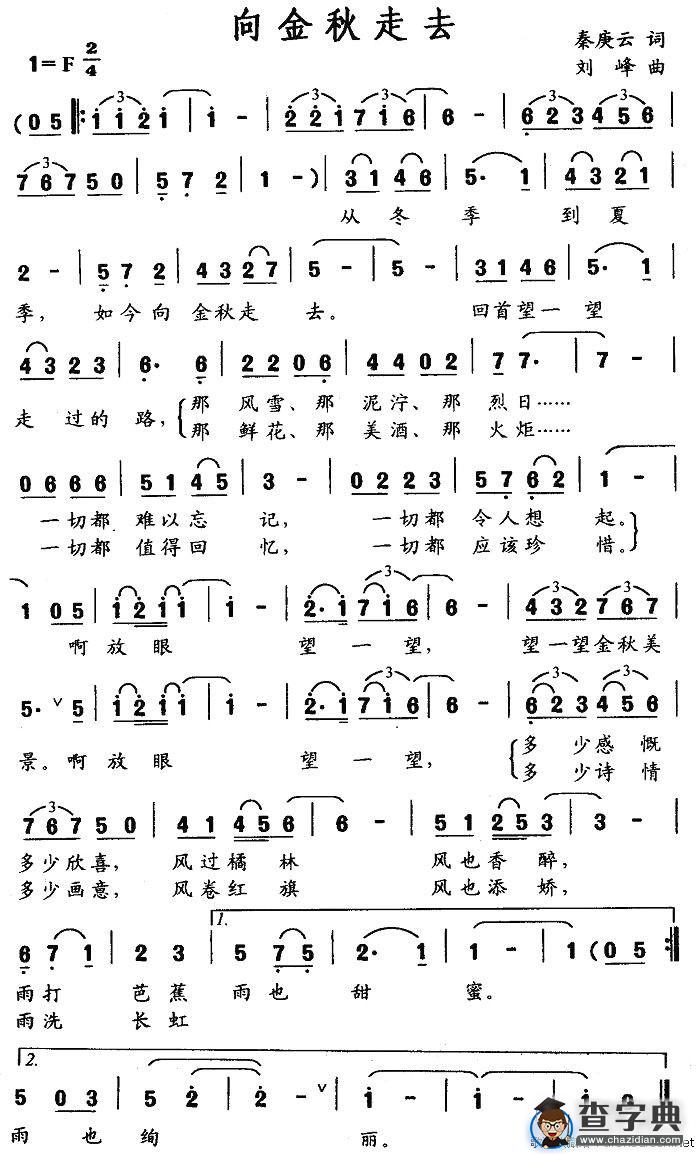 向金秋走去
秦庚云 词
1=F 2/4
刘 峰 曲
(0 5 |: 1 1 2 1 | 1 - | 2 2 1 7 1 6 | 6 - | 6 2 3 4 5 6 |
7 6 7 5 0 | 5 7 2 | 1 - ) | 3 1 4 6 | 5· 1 | 4 3 2 1 |
从 冬 季 到 夏
2 - | 5 7 2 | 4 3 2 7 | 5 - | 5 - | 3 1 4 6 | 5· 1 |
季, 如今向 金秋走 去。 回首望一望
4 3 2 3 | 6· 6 | 2 2 0 6 | 4 4 0 2 | 7 7· | 7 - |
走 过的路, 那 风雪、那 泥泞、那 烈日……
那 鲜花、那 美酒、那 火炬……
0 6 6 6 | 5 1 4 5 | 3 - | 0 2 2 3 | 5 7 6 2 | 1 - |
一切都 难以忘 记, 一切都 令人想 起。
一切都 值得回 忆, 一切都 应该珍 惜。
1 0 5 | 1 2 1 1 | 1 - | 2· 1 7 1 6 | 6 - | 4 3 2 7 6 7 |
啊放眼 望一望, 望一望金秋美
5· ∨ 5 | 1 2 1 1 | 1 - | 2· 1 7 1 6 | 6 - | 6 2 3 4 5 6 |
景。啊放眼 望一望, 多少感慨
多少诗情
7 6 7 5 0 | 4 1 4 5 6 | 6 - | 5 1 2 5 3 | 3 - |
多少欣喜, 风过橘林 风也香醉,
多少画意, 风卷红旗 风也添娇,
1.
6 7 1 | 2 3 | 5 7 5 | 2· 1 | 1 - | 1 (0 5 :|
雨打 芭蕉 雨也 甜 蜜。
雨洗 长虹
2.
5 0 3 | 5 2 | 2 - ∨ | 1 - | 1 - | 1 - :|
雨 也 绚 丽。
查字典
www.chazidian.com